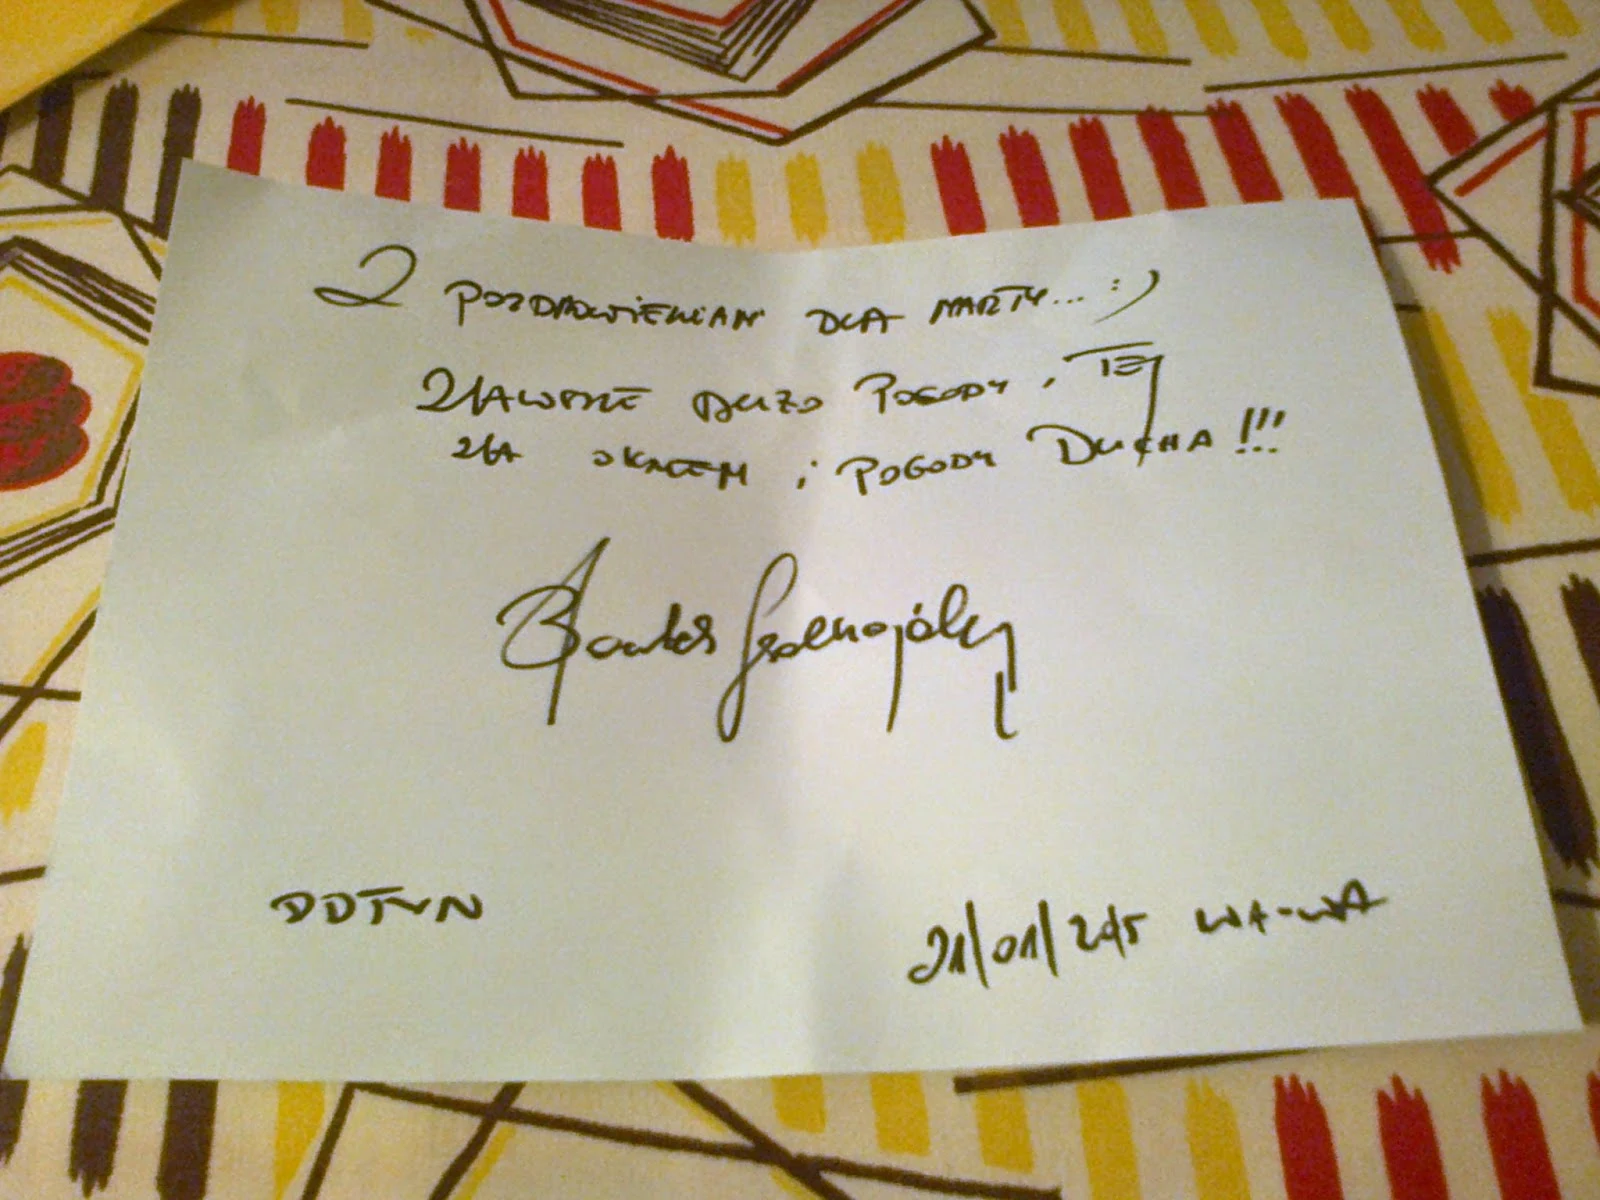 Z POZDROWIENIAMI DLA MARTY... :)
ZAWSZE DUŻO POGODY, TEJ
ZA OKNEM i POGODY DUCHA!!!
DDTVN
21/01/2015 WA-WA